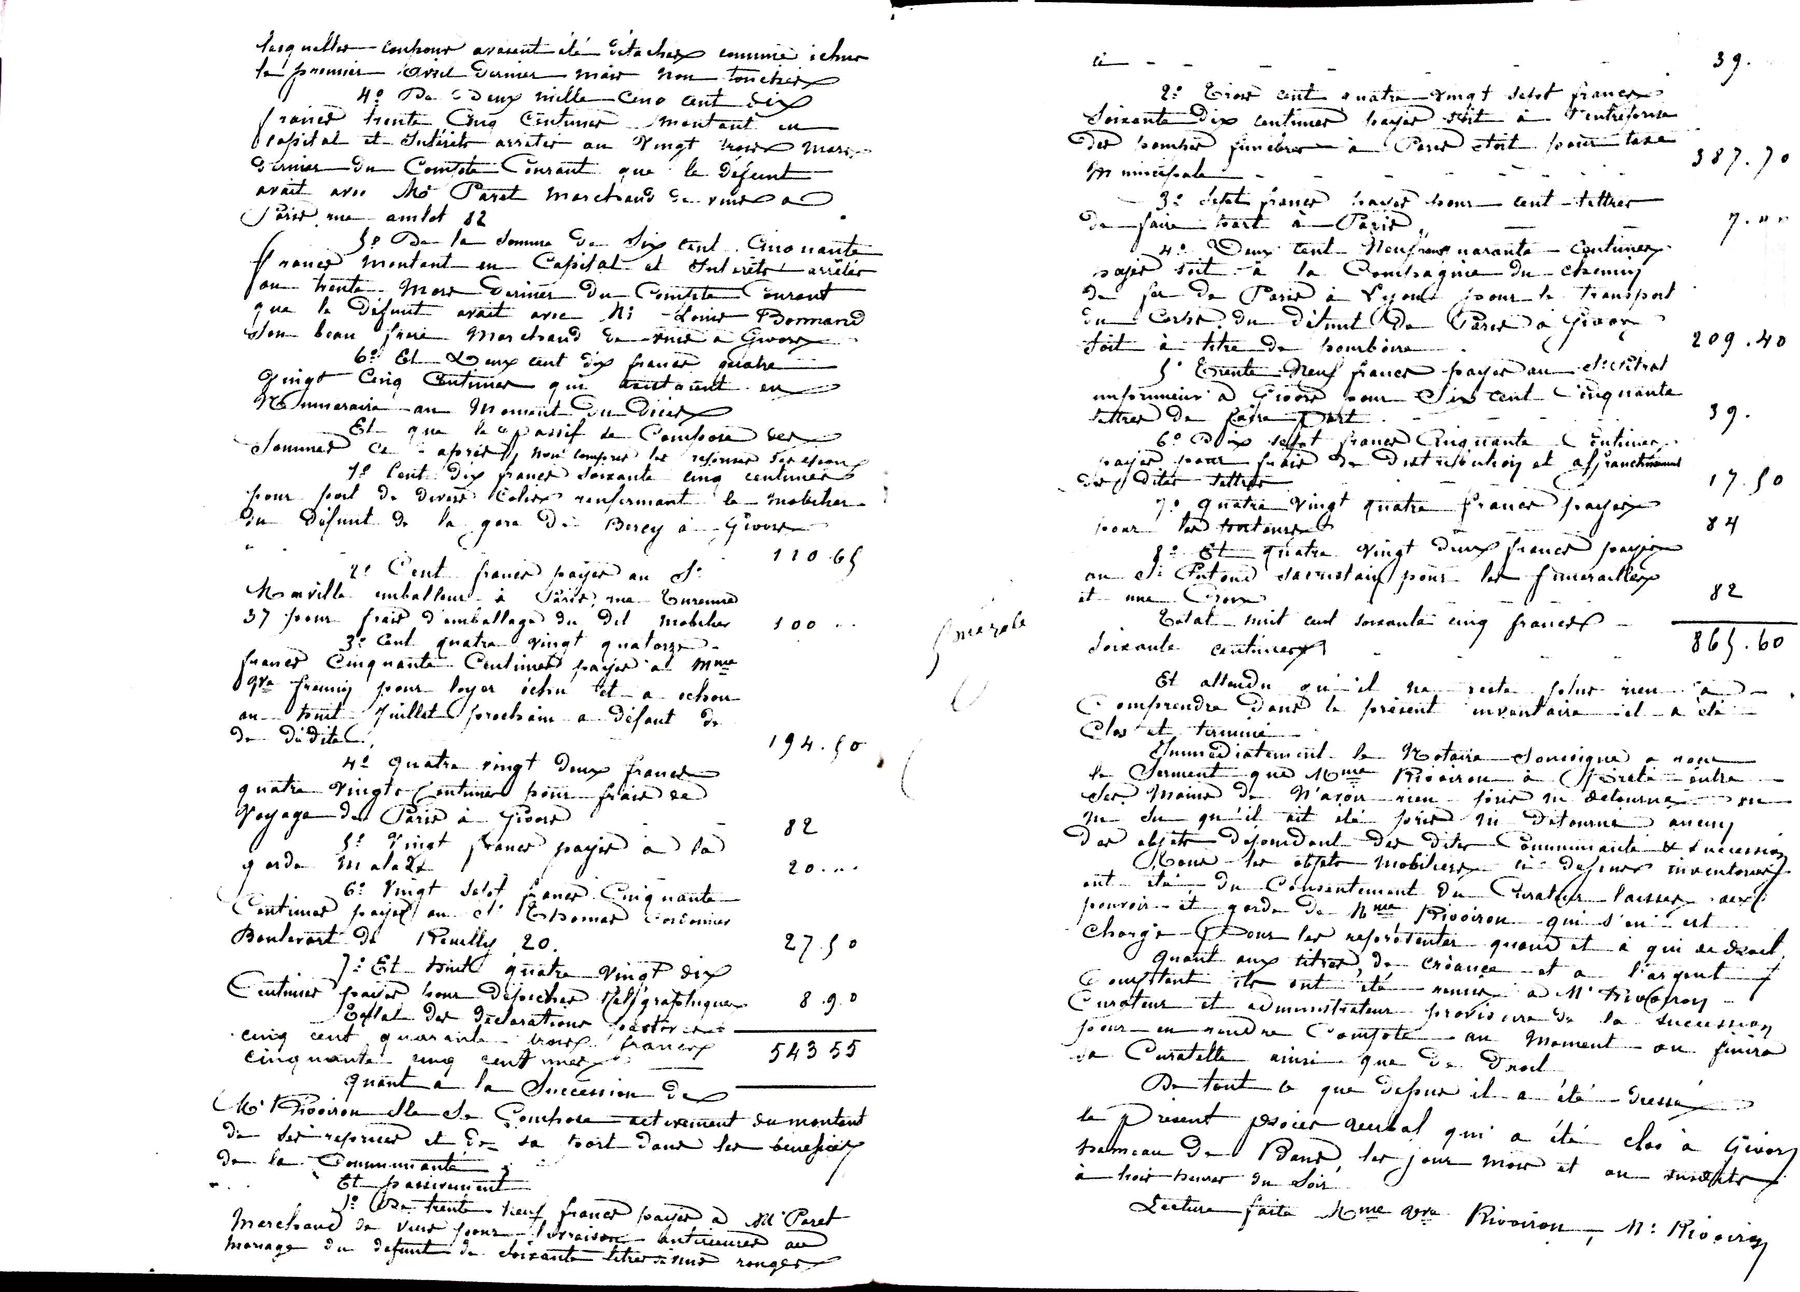 lesquelles coupons avaient été détachés comme échus
le premier Avril dernier mais non touchés
4º De Deux mille Cinq cent dix
francs trente Cinq Centimes montant en
capital et Intérêts arrêtés au Vingt trois Mars
dernier du Compte Courant que le défunt
avait avec Mr Paret Marchand de vins a
Paris rue amlot 82
5º De la Somme de Six cent Cinquante
francs montant en Capital et Intérêts arrêtés
au trente Mars dernier du Compte Courant
que le Défunt avait avec Mr Louis Bonnand
Son beau frère Marchand de vins à Givors
6º Et Deux cent dix francs quatre
Vingt Cinq Centimes qui existaient en
Numéraire au Moment du Décès
Et que le passif se Compose des
Sommes ci-après, non compris les reprises des époux
1º Cent dix francs soixante cinq centimes
pour port de divers Colis renfermant le mobilier
du Défunt de la gare de Bercy à Givors
110.65
2º Cent francs payés au Sr
Marville emballeur à Paris, rue Turenne
37 pour frais d'emballage du dit mobilier 100 ..
3º Cent quatre vingt quatorze
francs Cinquante Centimes payés a Mme
Vve freuny pour loyer échu et a echoir
au huit Juillet prochain a défaut de
de dédite. 194.50
4º Quatre vingt deux francs
quatre Vingts Centimes pour frais de
Voyage de Paris à Givors 82
5º Vingt francs payés à la
garde Malade 20...
6º Vingt sept francs Cinquante
Centimes payés au Sr Thomas cordonnier
Boulevart de Reuilly 20. 27.50
7º Et huit quatre Vingt dix
Centimes payés pour dépêches télégraphiques 8.90
Total des déclarations passives
cinq cent quarante trois francs
cinquante cinq centimes 543 55
Quant a la Succession de
Mr Rivoiron elle se Compose activement du montant
de ses reprises et de sa part dans les bénéfices
de la Communauté
Et passivement
1º De trente neuf francs payés à Mr Paret
Marchand de vins pour livraison antérieures au
mariage du defunt de Soixante litres de vins rouges
Générale
ci - - - - - - 39.
2º Trois cent quatre vingt sept francs
Soixante Dix centimes payés soit à l'entreprise
des pompes funèbres à Paris soit pour taxe
Municipale - - - - - 387.70
3º Sept francs payés pour cent lettres
de faire part à Paris 7.""
4º Deux cent Neuf francs quarante centimes
payés soit à la Compagnie du chemin
de fer de Paris à Lyon pour le transport
du Corps du défunt de Paris à Givors
soit à titre de pourboire 209.40
5º Trente Neuf francs payés au
imprimeur à Givors pour Six cent Cinquante
lettres de faire part 39.
6º Dix sept francs Cinquante Centimes
payés pour frais de Distribution et affranchissement
des dites lettres 17.50
7º Quatre Vingt quatre francs payés
pour les porteurs 84
8º Et Quatre Vingt deux francs payés
au Sr sacristain pour les funerailles
et une Croix 82
Total huit cent soixante cinq francs
soixante centimes 865.60
Et attendu qu'il ne reste plus rien à
Comprendre Dans le présent inventaire il a été
Clos et terminé
Immédiatement le Notaire Soussigné a reçu
le Serment que Mme Rivoiron à prêté entre
Ses Mains de N'avoir rien pris ni détourné vu
ni su qu'il ait été pris ni détourné aucun
des objets dépendant des dites Communauté & succession
Tous les objets mobiliers ci-dessus inventoriés
ont été du Consentement du Curateur laissés aux
pouvoir et garde de Mme Rivoiron qui s'en est
Chargée Pour les représenter quand et à qui de droit
Quant aux titres, de créance et a l'argent
Comptant ils ont été remis à Mr Rivoiron
Curateur et administrateur provisoire de la succession
pour en rendre Compte au Moment ou finira
sa Curatelle ainsi que de Droit
De tout ce que dessus il a été dressé
le Présent procès verbal qui a été clos à Givors
hameau de Bans les jour mois et an susdits
à trois heures du Soir
Lecture faite Mme Vve Rivoiron, Mr Rivoiron